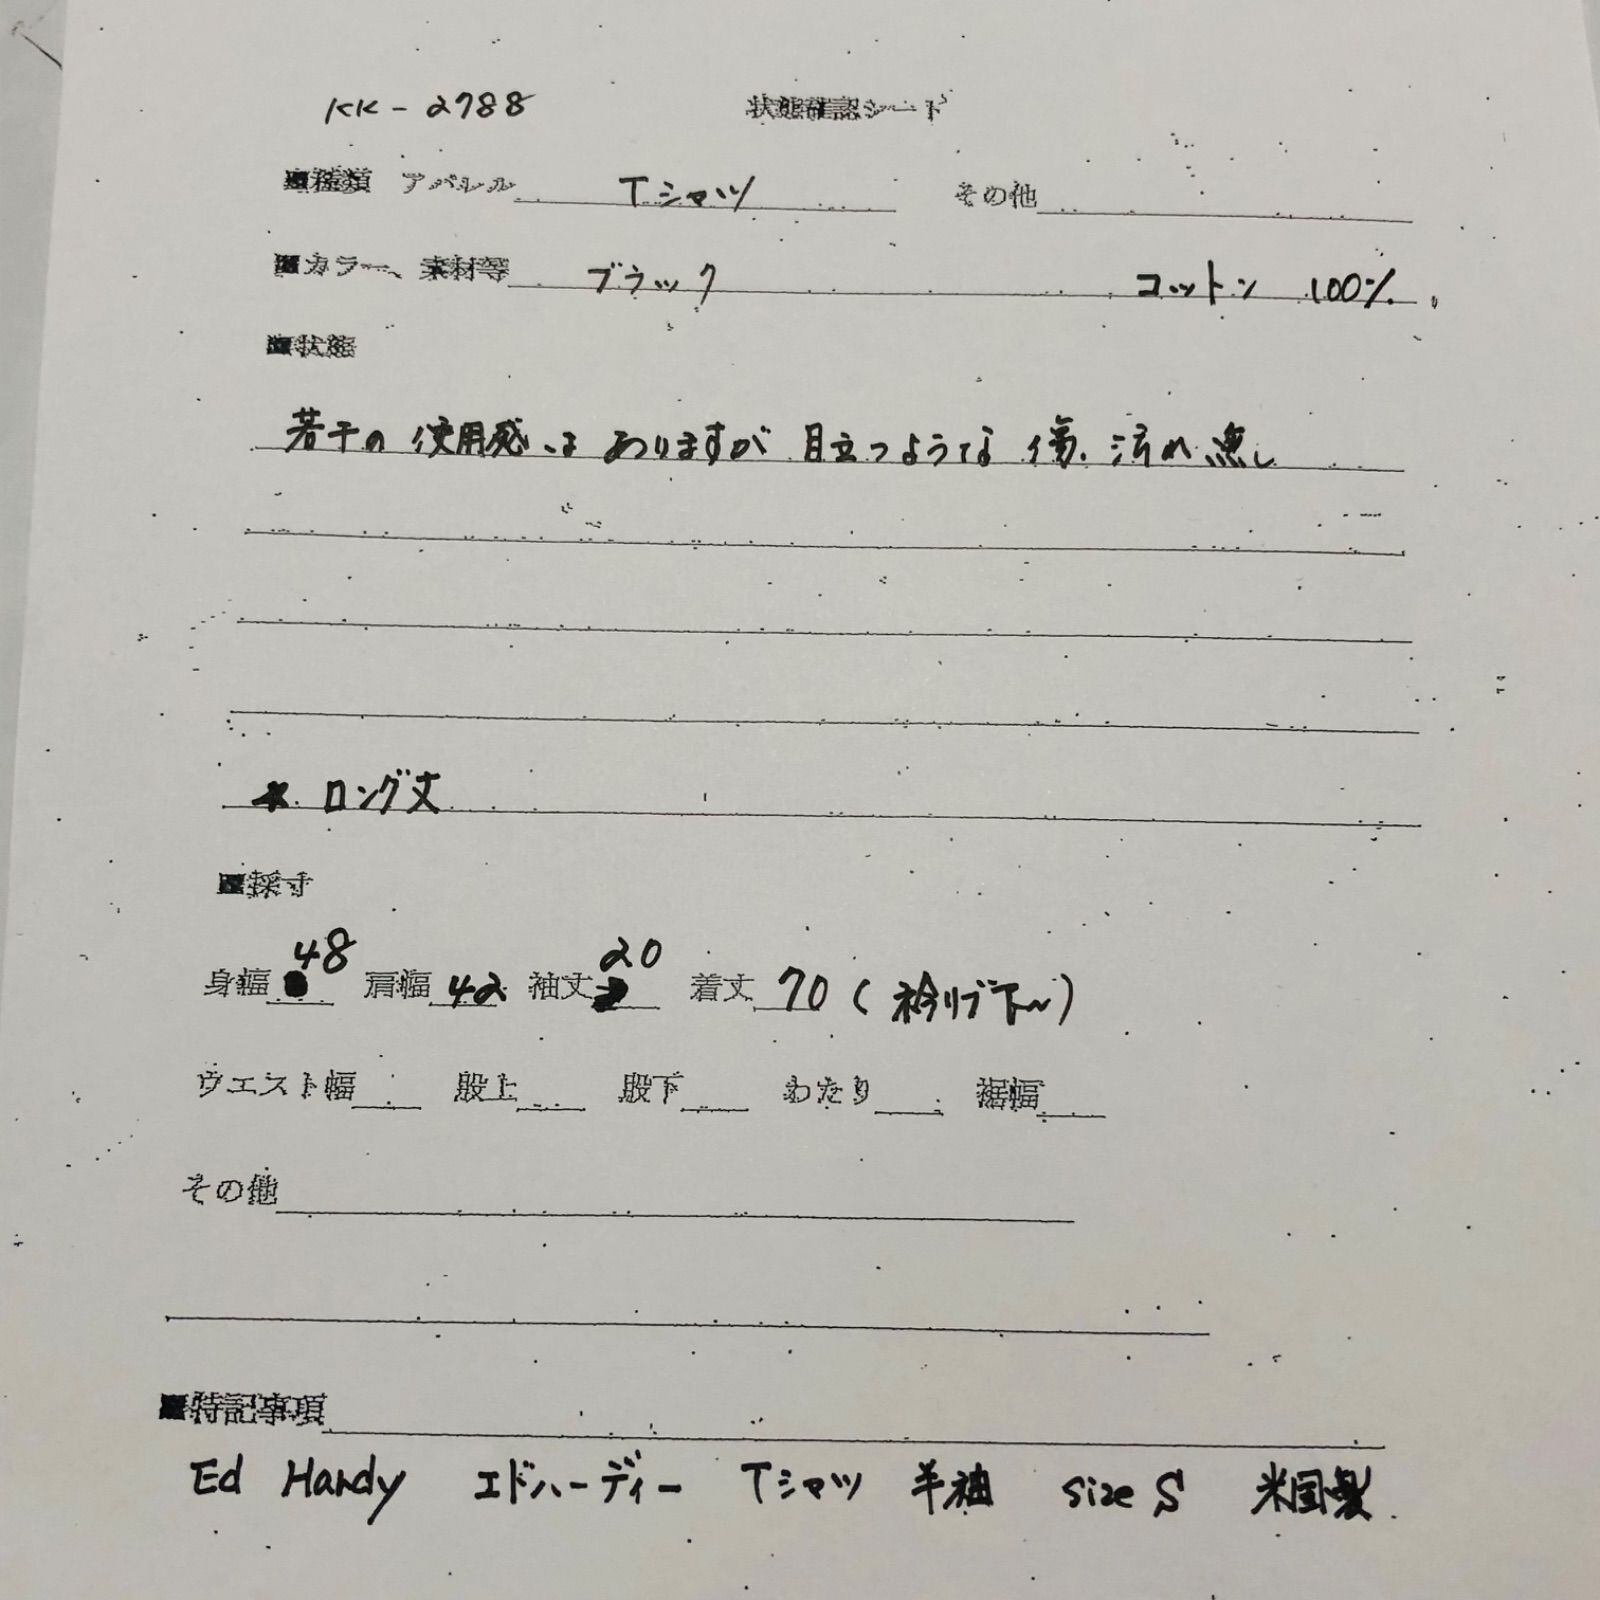 KK-2788 状態確認シート
■種類 アパレル Tシャツ その他
■カラー、素材等 ブラック コットン 100%
■状態
若干の使用感はありますが 目立つような 傷.汚れ無し
* ロング丈
■採寸
身幅 48 肩幅 42 袖丈 20 着丈 70 (衿リブ下~)
ウエスト幅 股上 股下 わたり 裾幅
その他
■特記事項
Ed Hardy エドハーディー Tシャツ 半袖 size S 米国製